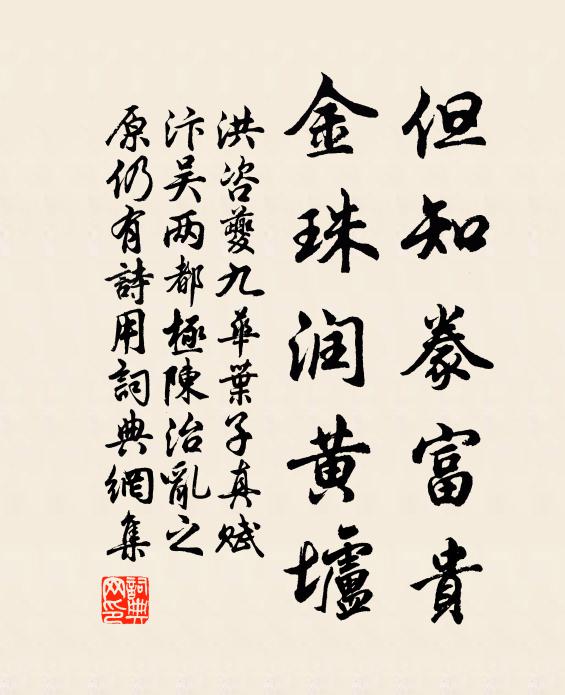 但知豢富貴
金珠润黄壚
洪咨夔九華葉子真赋
汴吴两都極陳治亂之
原仍有詩用詞典網集
詞典網印